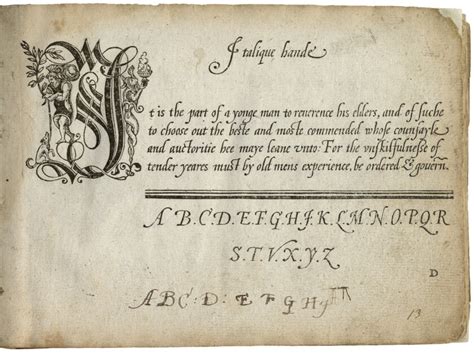 Italique hande
It is the part of a yonge man to reuerence his elders, and of suche
to choose out the beste and moste commended whose counsayle
and auctoritie hee maye leane vnto: For the vnskilfulnesse of
tender yeares must by old mens experience, be ordered & gouern̄.
A.B.C.D.E.F.G.H.J.K.L.M.N.O.P.Q.R
S.T.V.X.Y.Z
D
A B C D E F G H
13